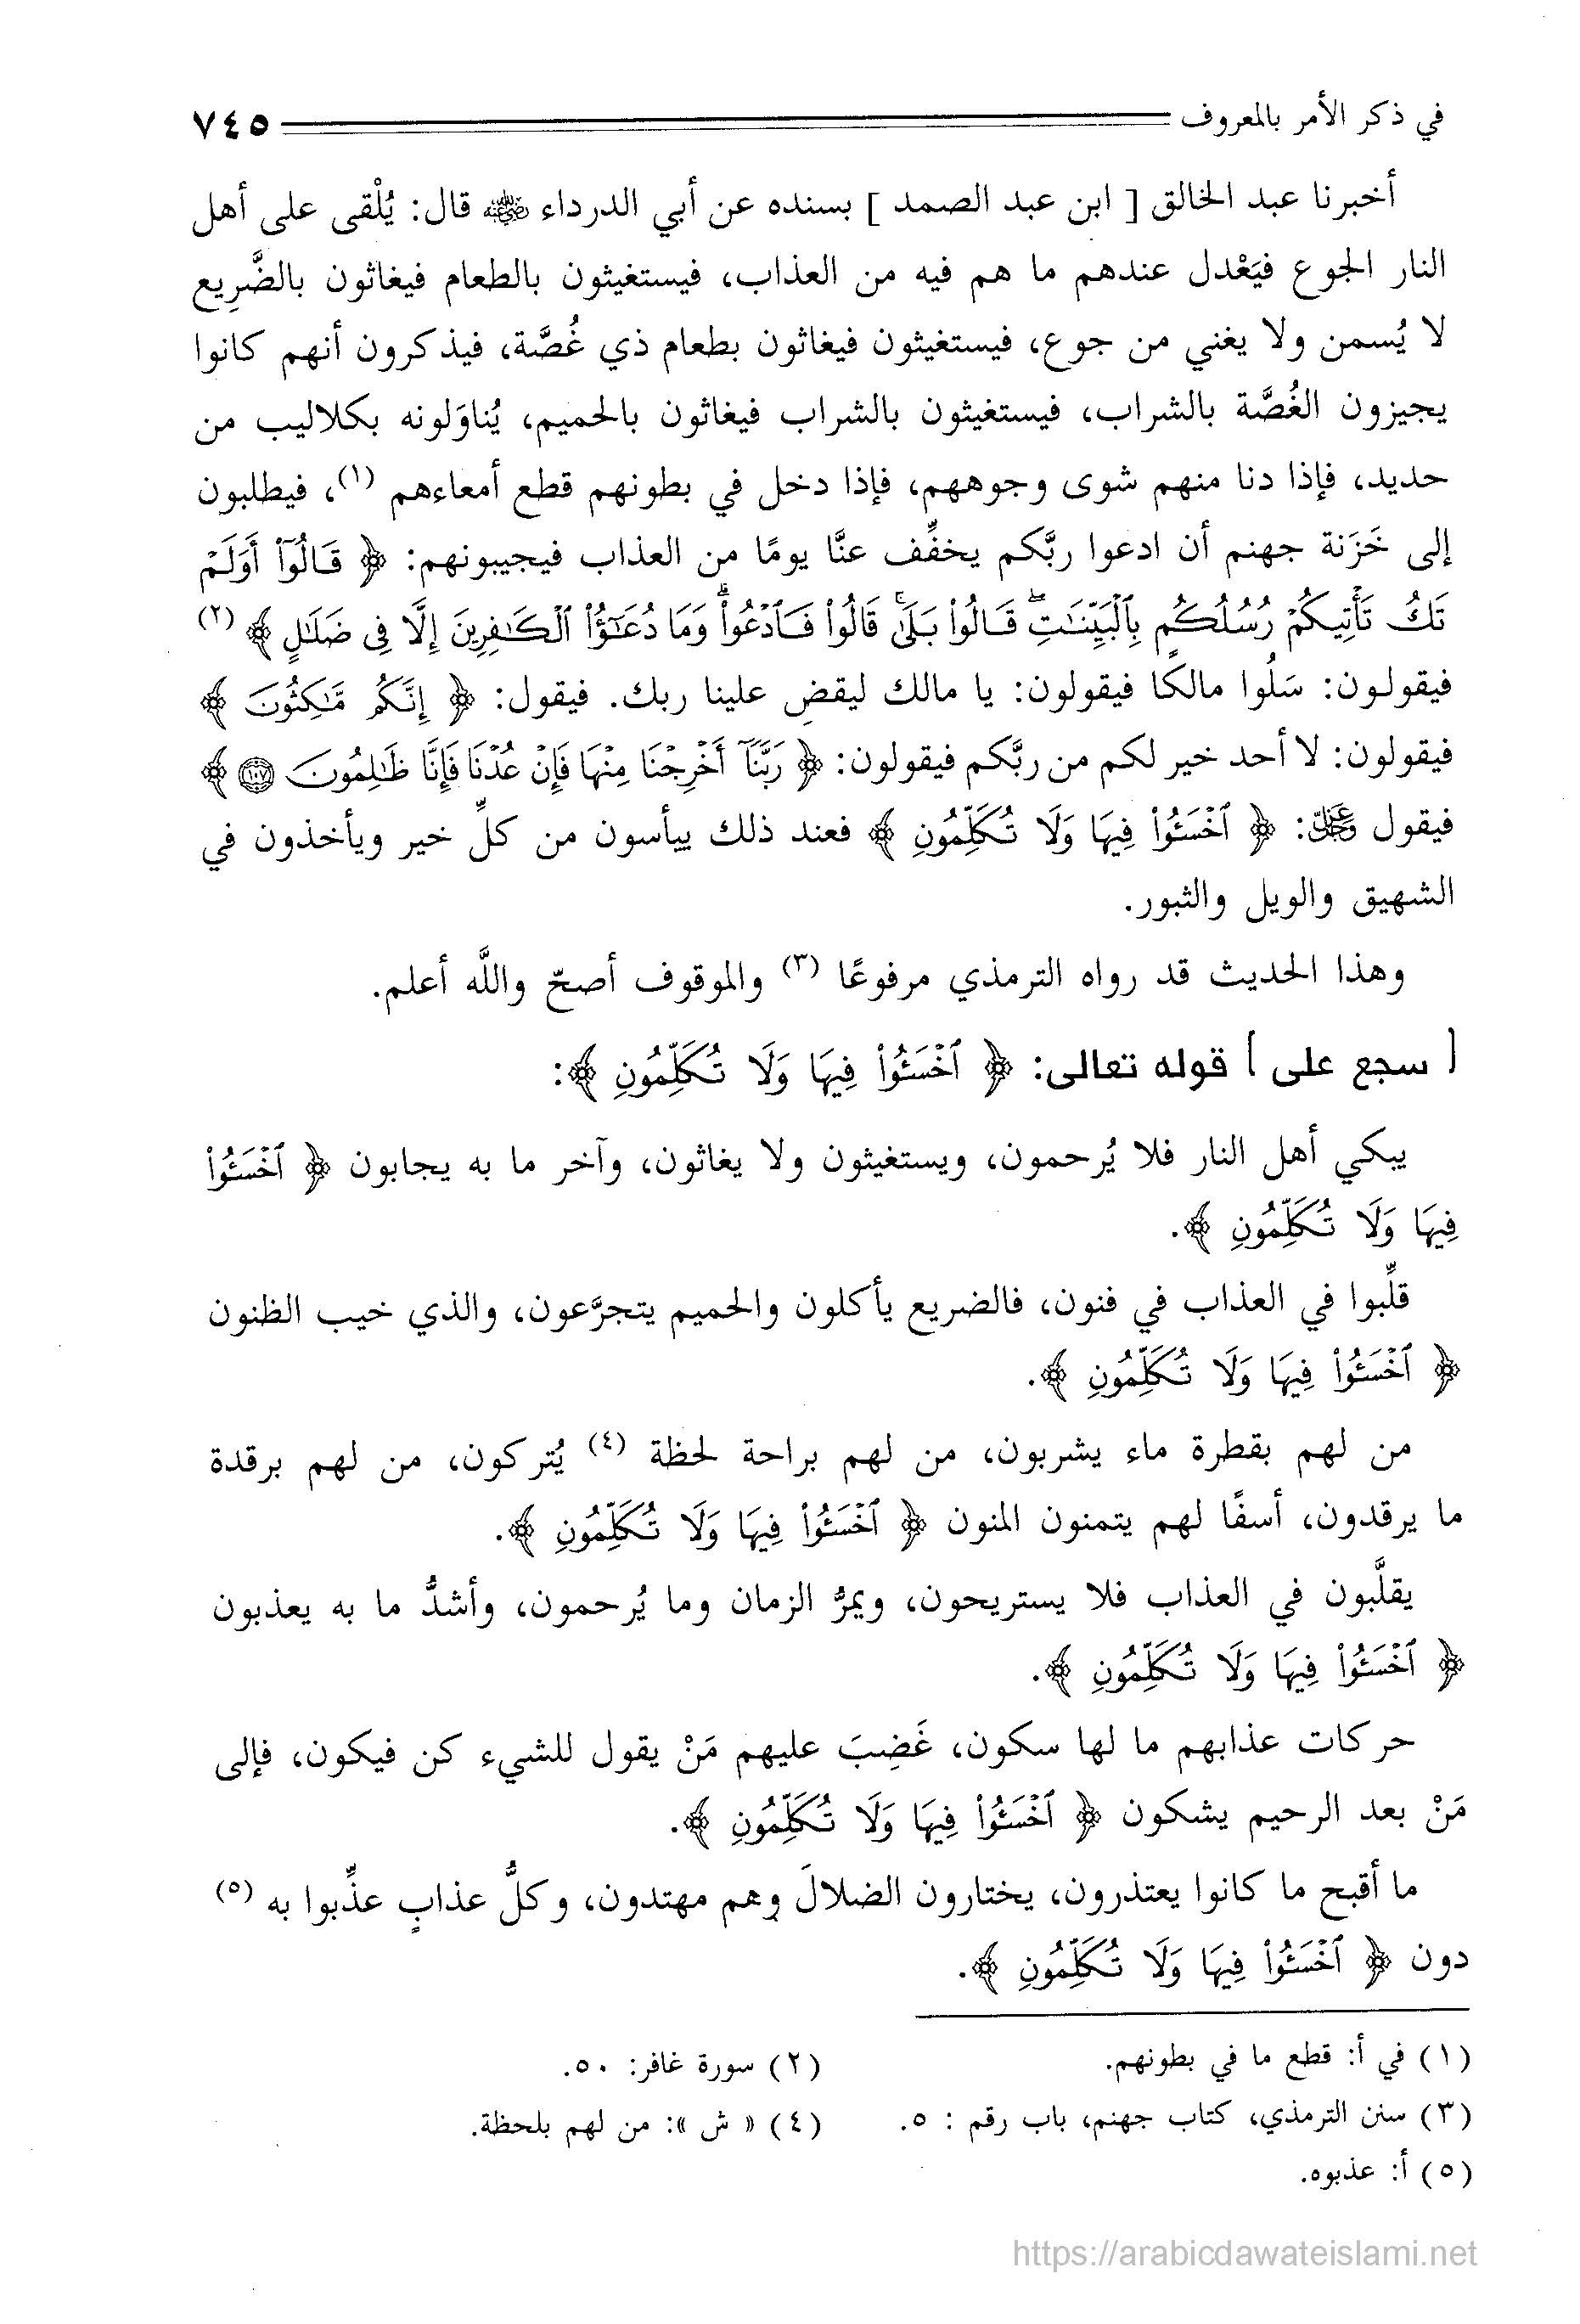 في ذكر الأمر بالمعروف ٧٤٥
أخبرنا عبد الخالق [ ابن عبد الصمد ] بسنده عن أبي الدرداء رضي الله عنه قال: يُلْقى على أهل
النار الجوع فيَعْدل عندهم ما هم فيه من العذاب، فيستغيثون بالطعام فيغاثون بالضَّرِيع
لا يُسمن ولا يغني من جوع، فيستغيثون فيغاثون بطعام ذي غُصَّة، فيذكرون أنهم كانوا
يجيزون الغُصَّة بالشراب، فيستغيثون بالشراب فيغاثون بالحميم، يُناوَلونه بكلاليب من
حديد، فإذا دنا منهم شوى وجوههم، فإذا دخل في بطونهم قطع أمعاءهم (١)، فيطلبون
إلى خَزَنة جهنم أن ادعوا ربَّكم يخفِّف عنَّا يومًا من العذاب فيجيبونهم: ﴿ قَالُوٓاْ أَوَلَمۡ
تَكُ تَأۡتِيكُمۡ رُسُلُكُم بِٱلۡبَيِّنَٰتِۖ قَالُواْ بَلَىٰۚ قَالُواْ فَٱدۡعُواْۗ وَمَا دُعَٰٓؤُاْ ٱلۡكَٰفِرِينَ إِلَّا فِي ضَلَٰلٍ ﴾ (٢)
فيقولون: سَلُوا مالكًا فيقولون: يا مالك ليقضِ علينا ربك. فيقول: ﴿ إِنَّكُم مَّٰكِثُونَ ﴾
فيقولون: لا أحد خير لكم من ربَّكم فيقولون: ﴿ رَبَّنَآ أَخۡرِجۡنَا مِنۡهَا فَإِنۡ عُدۡنَا فَإِنَّا ظَٰلِمُونَ ١٠٧ ﴾
فيقول عَزَّ وَجَلَّ: ﴿ ٱخۡسَـُٔواْ فِيهَا وَلَا تُكَلِّمُونِ ﴾ فعند ذلك ييأسون من كلِّ خير ويأخذون في
الشهيق والويل والثبور.
وهذا الحديث قد رواه الترمذي مرفوعًا (٣) والموقوف أصحّ واللَّه أعلم.
[ سجع على ] قوله تعالى: ﴿ ٱخۡسَـُٔواْ فِيهَا وَلَا تُكَلِّمُونِ ﴾:
يبكي أهل النار فلا يُرحمون، ويستغيثون ولا يغاثون، وآخر ما به يجابون ﴿ ٱخۡسَـُٔواْ
فِيهَا وَلَا تُكَلِّمُونِ ﴾.
قلِّبوا في العذاب في فنون، فالضريع يأكلون والحميم يتجرَّعون، والذي خيب الظنون
﴿ ٱخۡسَـُٔواْ فِيهَا وَلَا تُكَلِّمُونِ ﴾.
من لهم بقطرة ماء يشربون، من لهم براحة لحظة (٤) يُتركون، من لهم برقدة
ما يرقدون، أسفًا لهم يتمنون المنون ﴿ ٱخۡسَـُٔواْ فِيهَا وَلَا تُكَلِّمُونِ ﴾.
يقلَّبون في العذاب فلا يستريحون، ويمرُّ الزمان وما يُرحمون، وأشدُّ ما به يعذبون
﴿ ٱخۡسَـُٔواْ فِيهَا وَلَا تُكَلِّمُونِ ﴾.
حركات عذابهم ما لها سكون، غَضِبَ عليهم مَنْ يقول للشيء كن فيكون، فإلى
مَنْ بعد الرحيم يشكون ﴿ ٱخۡسَـُٔواْ فِيهَا وَلَا تُكَلِّمُونِ ﴾.
ما أقبح ما كانوا يعتذرون، يختارون الضلالَ وهم مهتدون، وكلُّ عذابٍ عذِّبوا به (٥)
دون ﴿ ٱخۡسَـُٔواْ فِيهَا وَلَا تُكَلِّمُونِ ﴾.
(١) في أ: قطع ما في بطونهم. (٢) سورة غافر: ٥٠.
(٣) سنن الترمذي، كتاب جهنم، باب رقم : ٥. (٤) « ش »: من لهم بلحظة.
(٥) أ: عذبوه.
https://arabicdawateislami.net